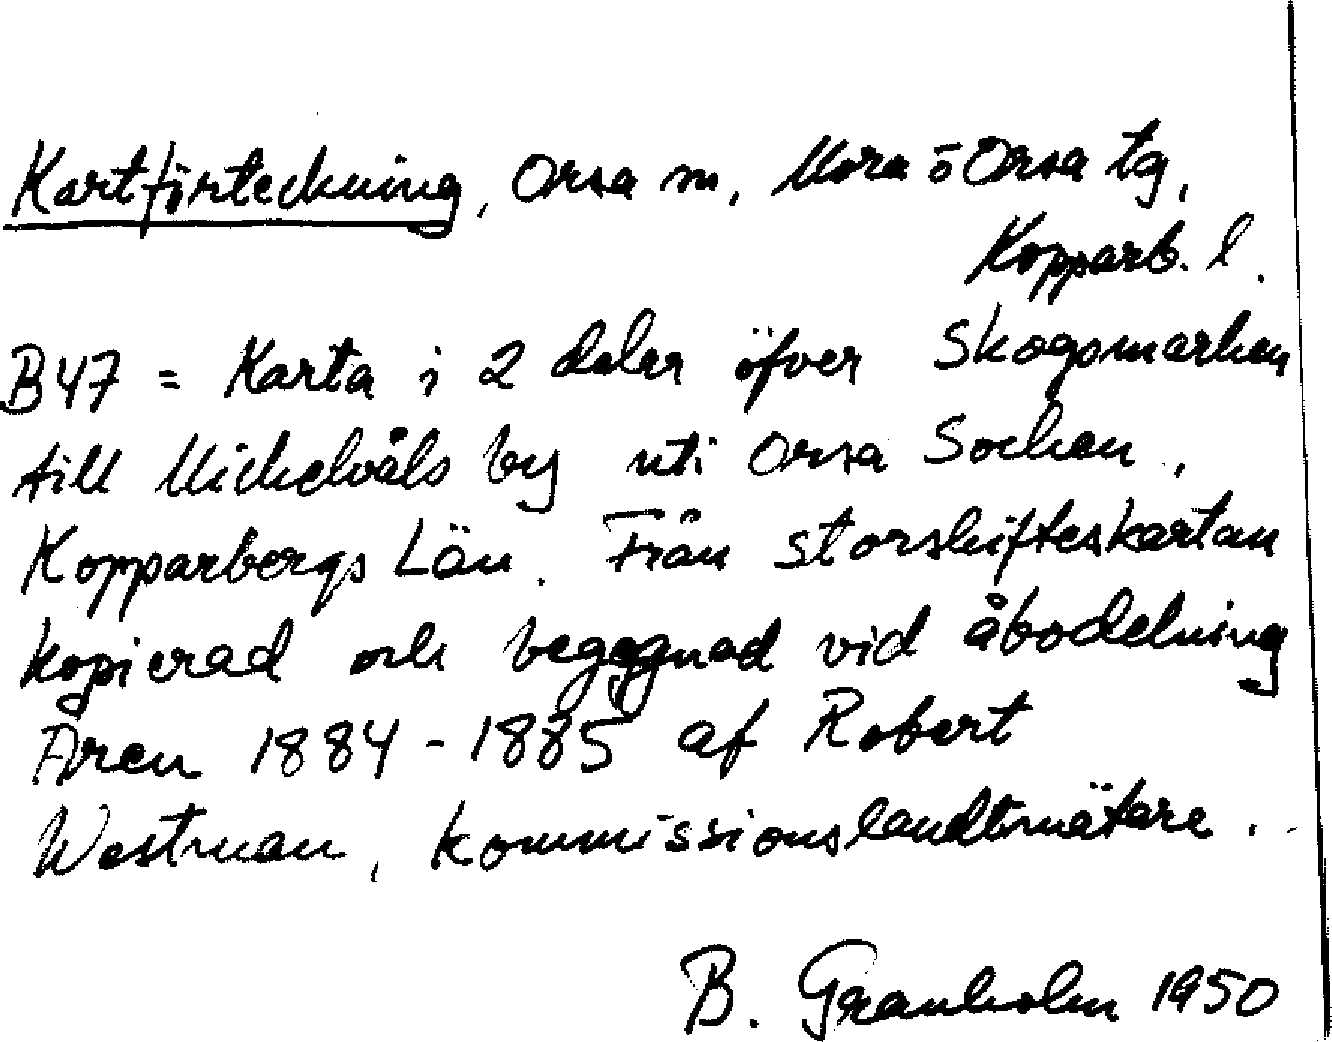 Kartförteckning, Orsa sn, Mora ö Orsa tg,
Kopparb. l.
B47 = Karta i 2 delar öfver Skogsmarken
till Mickelvåls by uti Orsa Socken,
Kopparbergs Län. Från storskifteskartan
kopierad och begagnad vid åbodelning
Åren 1884-1885 af Robert
Westman, Kommissionslandtmätare.
B. Granholm 1950